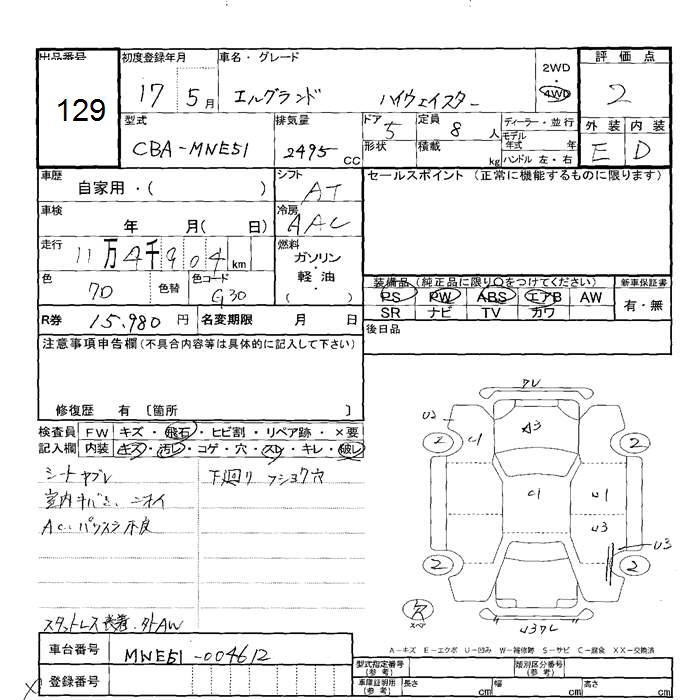 出品番号 初度登録年月 車名・グレード 評価点
129
17 5月 エルグランド ハイウェイスター 2WD 4WD 2
型式 排気量 ドア 定員 ディーラー・並行 外装 内装
CBA-MNE51 2495 CC 5 8 人 モデル年式 年
形状 積載 kg ハンドル 左・右 E D
車歴 シフト セールスポイント (正常に機能するものに限ります)
自家用・( ) AT
車検 冷房
年 月( 日) AAC
走行 燃料
11万4千904 km ガソリン・軽油
色 色替 色コード ( )
7D G30
装備品 (純正品に限り〇をつけてください) 新車保証書
PS PW ABS エアB AW 有・無
SR ナビ TV カワ
R券 15,980 円 名変期限 月 日 後日品
注意事項申告欄(不具合内容等は具体的に記入して下さい)
修復歴 有 [箇所 ]
検査員 FW キズ・飛石・ヒビ割・リペア跡・×要
記入欄 内装 キズ・汚レ・コゲ・穴・スレ・キレ・破レ
シートヤブレ 下廻り フショク穴
室内キバミ、ニオイ
AC、パワスラ不良
スタットレス装着・外AW
ワレ
U2
2 U1 A3 2
C1 U1
U3
U3
2 2
欠
スペア
U3ワレ
A-キズ E-エクボ U-凹み W-補修跡 S-サビ C-腐食 XX-交換済
車台番号 MNE51-004612
型式指定番号(参考) 類別区分番号(参考)
登録番号
車庫証明用(参考) 長さ cm 幅 cm 高さ cm